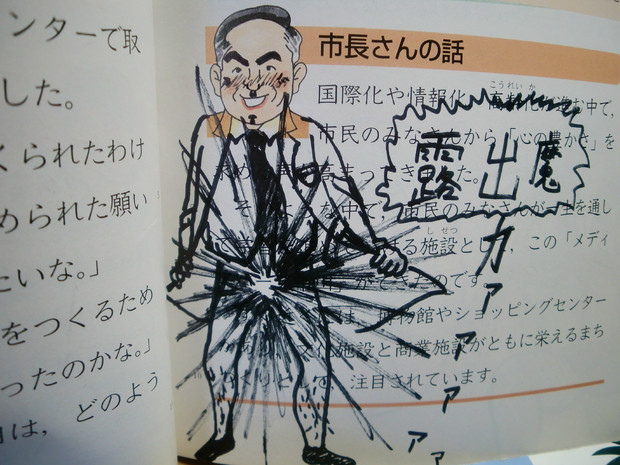 ンターで取
した。
くられたわけ
められた願い
たいな。」
をつくるため
ったのかな。」
は、どのよう
市長さんの話
こうれいか
国際化や情報化、高齢化が進む中で、
市民のみなさんから「心の豊かさ」を
高まってきました。
そ な中で、市民のみなさんが一生を通し
しせつ
る施設として、この「メディ
ができたのです。
は、博物館やショッピングセンター
があり、文化施設と商業施設がともに栄えるまち
づくりとして、注目されています。
露出魔
カァァァァァ